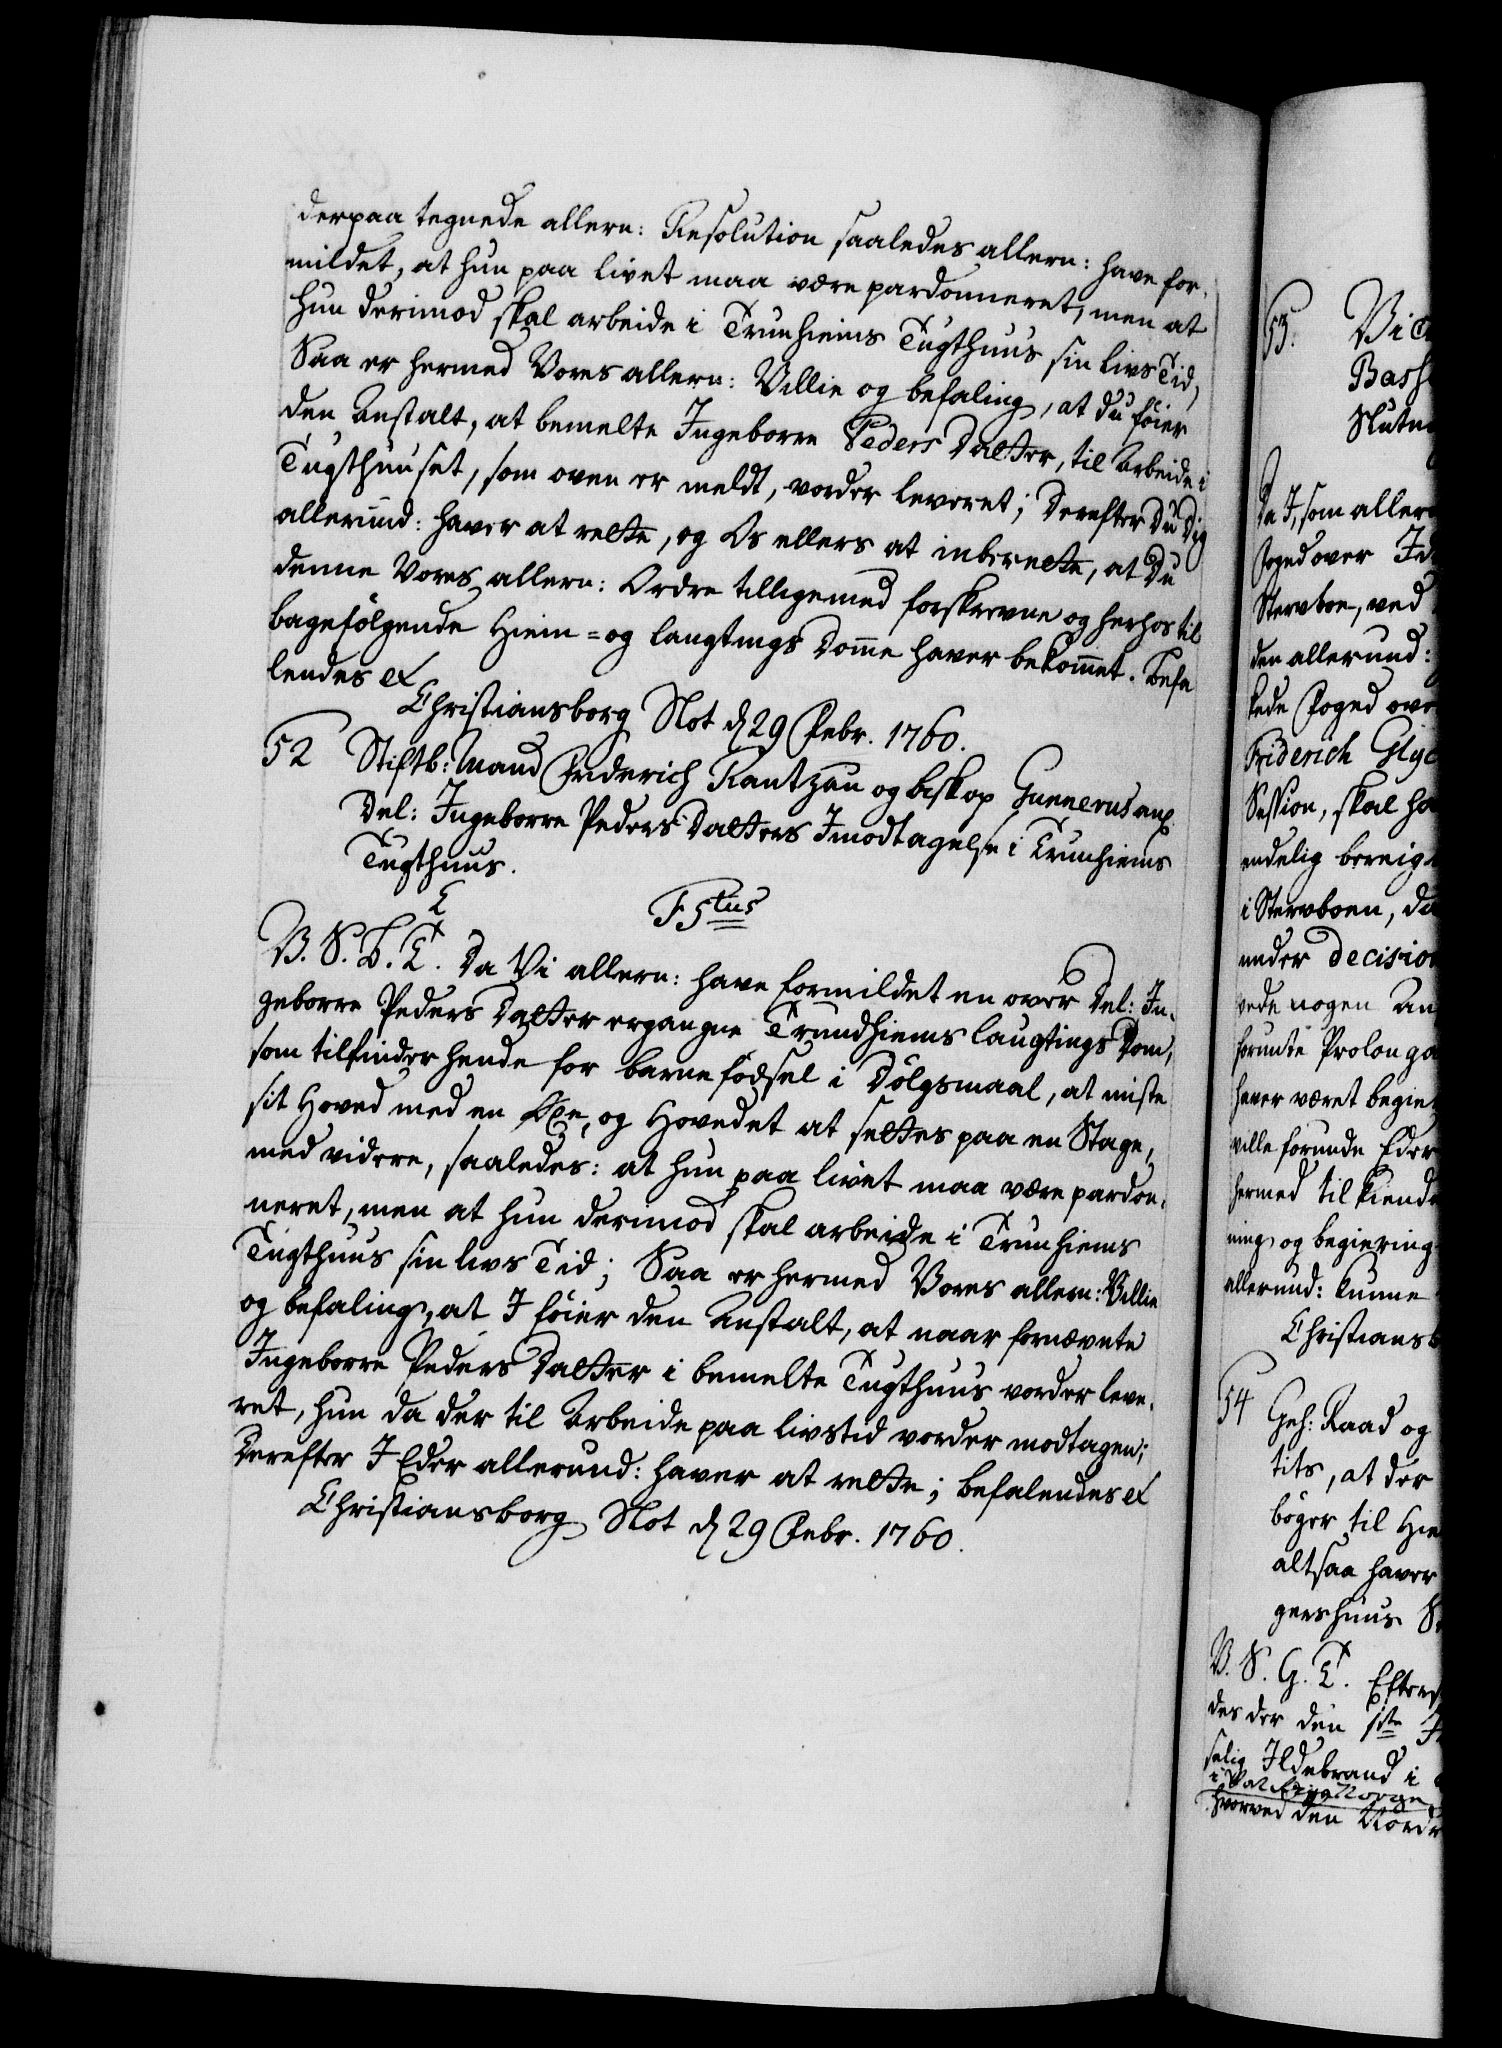 derpaa tegnede allern: Resolution saaledes allern: have for-
mildet, at hun paa livet maa være pardonneret, men at
hun derimod skal arbeide i Trunhiems Tugthuus sin livs Tid,
Saa er hermed Vores allern: Villie og befaling, at du föier
den Anstalt, at bemelte Ingeborre Peders Datter, til Arbeide i
Tugthuuset, som oven er meldt, vorder leveret; Derefter Du Dig
allerund: haver at rette, og Os ellers at inberette, at Du
denne Vores allern: Ordre tilligemed forskrevne og herhos til
bagefölgende Hiem- og laugtings Domme haver bekommet. Befa
lendes &
Christiansborg Slot d 29 Febr. 1760.
52 Stiftb:mand Friderich Rantzau og biskop Gunnerus ang.
Del: Ingeborre Peders Datters Imodtagelse i Trunhiems
Tugthuus.
F 5tus
V. S. G. T. Da Vi allern: have formildet en over Del: In-
geborre Peders Datter ergangne Trundhiems laugtings Dom,
som tilfinder hende for barnefödsel i Dölgsmaal, at miste
sit Hoved med en Öxe, og Hovedet at settes paa en Stage,
med videre, saaledes: at hun paa livet maa være pardon-
neret, men at hun derimod skal arbeide i Trunhiems
Tugthuus sin livs Tid; Saa er hermed Vores allern: Villie
og befaling, at I föier den Anstalt, at naar fornævnte
Ingeborre Peders Datter i bemelte Tugthuus vorder leve-
ret, hun da der til Arbeide paa livstid vorder modtagen;
Derefter I Eder allerund: haver at rette; befalendes &
Christiansborg Slot d 29 Febr. 1760.
53.
Da I, som aller
foged over
Stervboe, ved
den allerund:
kede foged ove
Friderich
Session, skal ha
endelig
i Stervboen, da
under Decision
vede nogen An
forunte Prolonga
haver været
ville forunde Eder
hermed tilkiende
ning og begiering
allerund: kunne
Christiansb
54 Geh: Raad og
tits, at der
böger til
altsaa haver
gershuus
V. S. G. T.
des der den 1ste
salig Ildebrand i
hvorved den